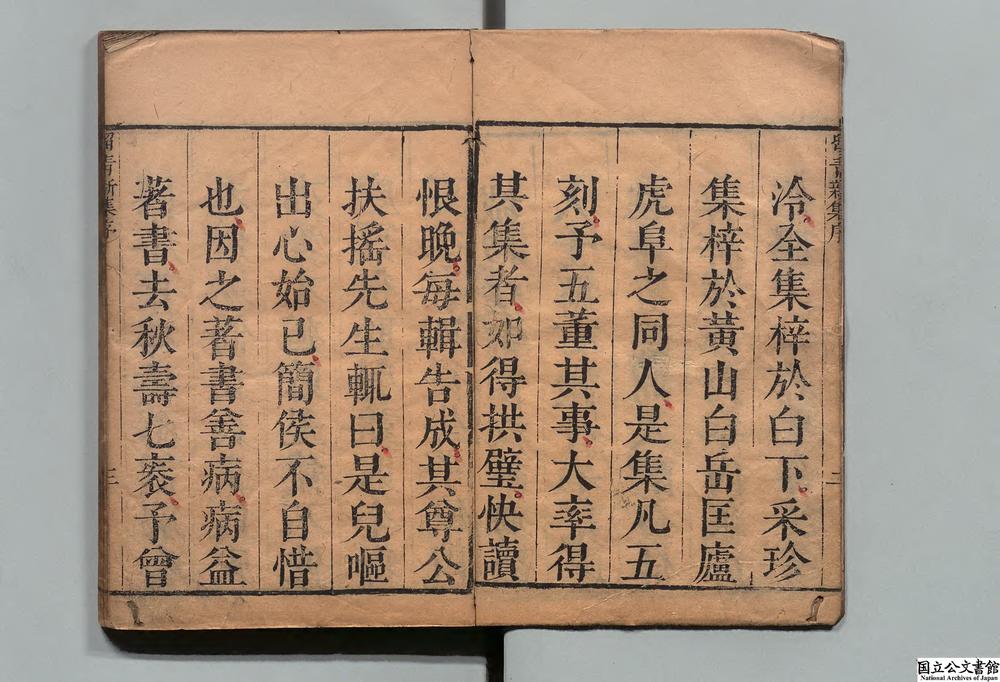 冷全集梓於白下采珍
集梓於黃山白岳匡廬
虎阜之同人是集凡五
刻予五董其事大率得
其集者如得拱璧快讀
恨晚每輯告成其尊公
扶搖先生輒曰是兒嘔
出心始已簡侯不自惜
也因之著書善病病益
著書去秋壽七袠予曾
留青新集序
二
留青新集序
三
国立公文書館
National Archives of Japan